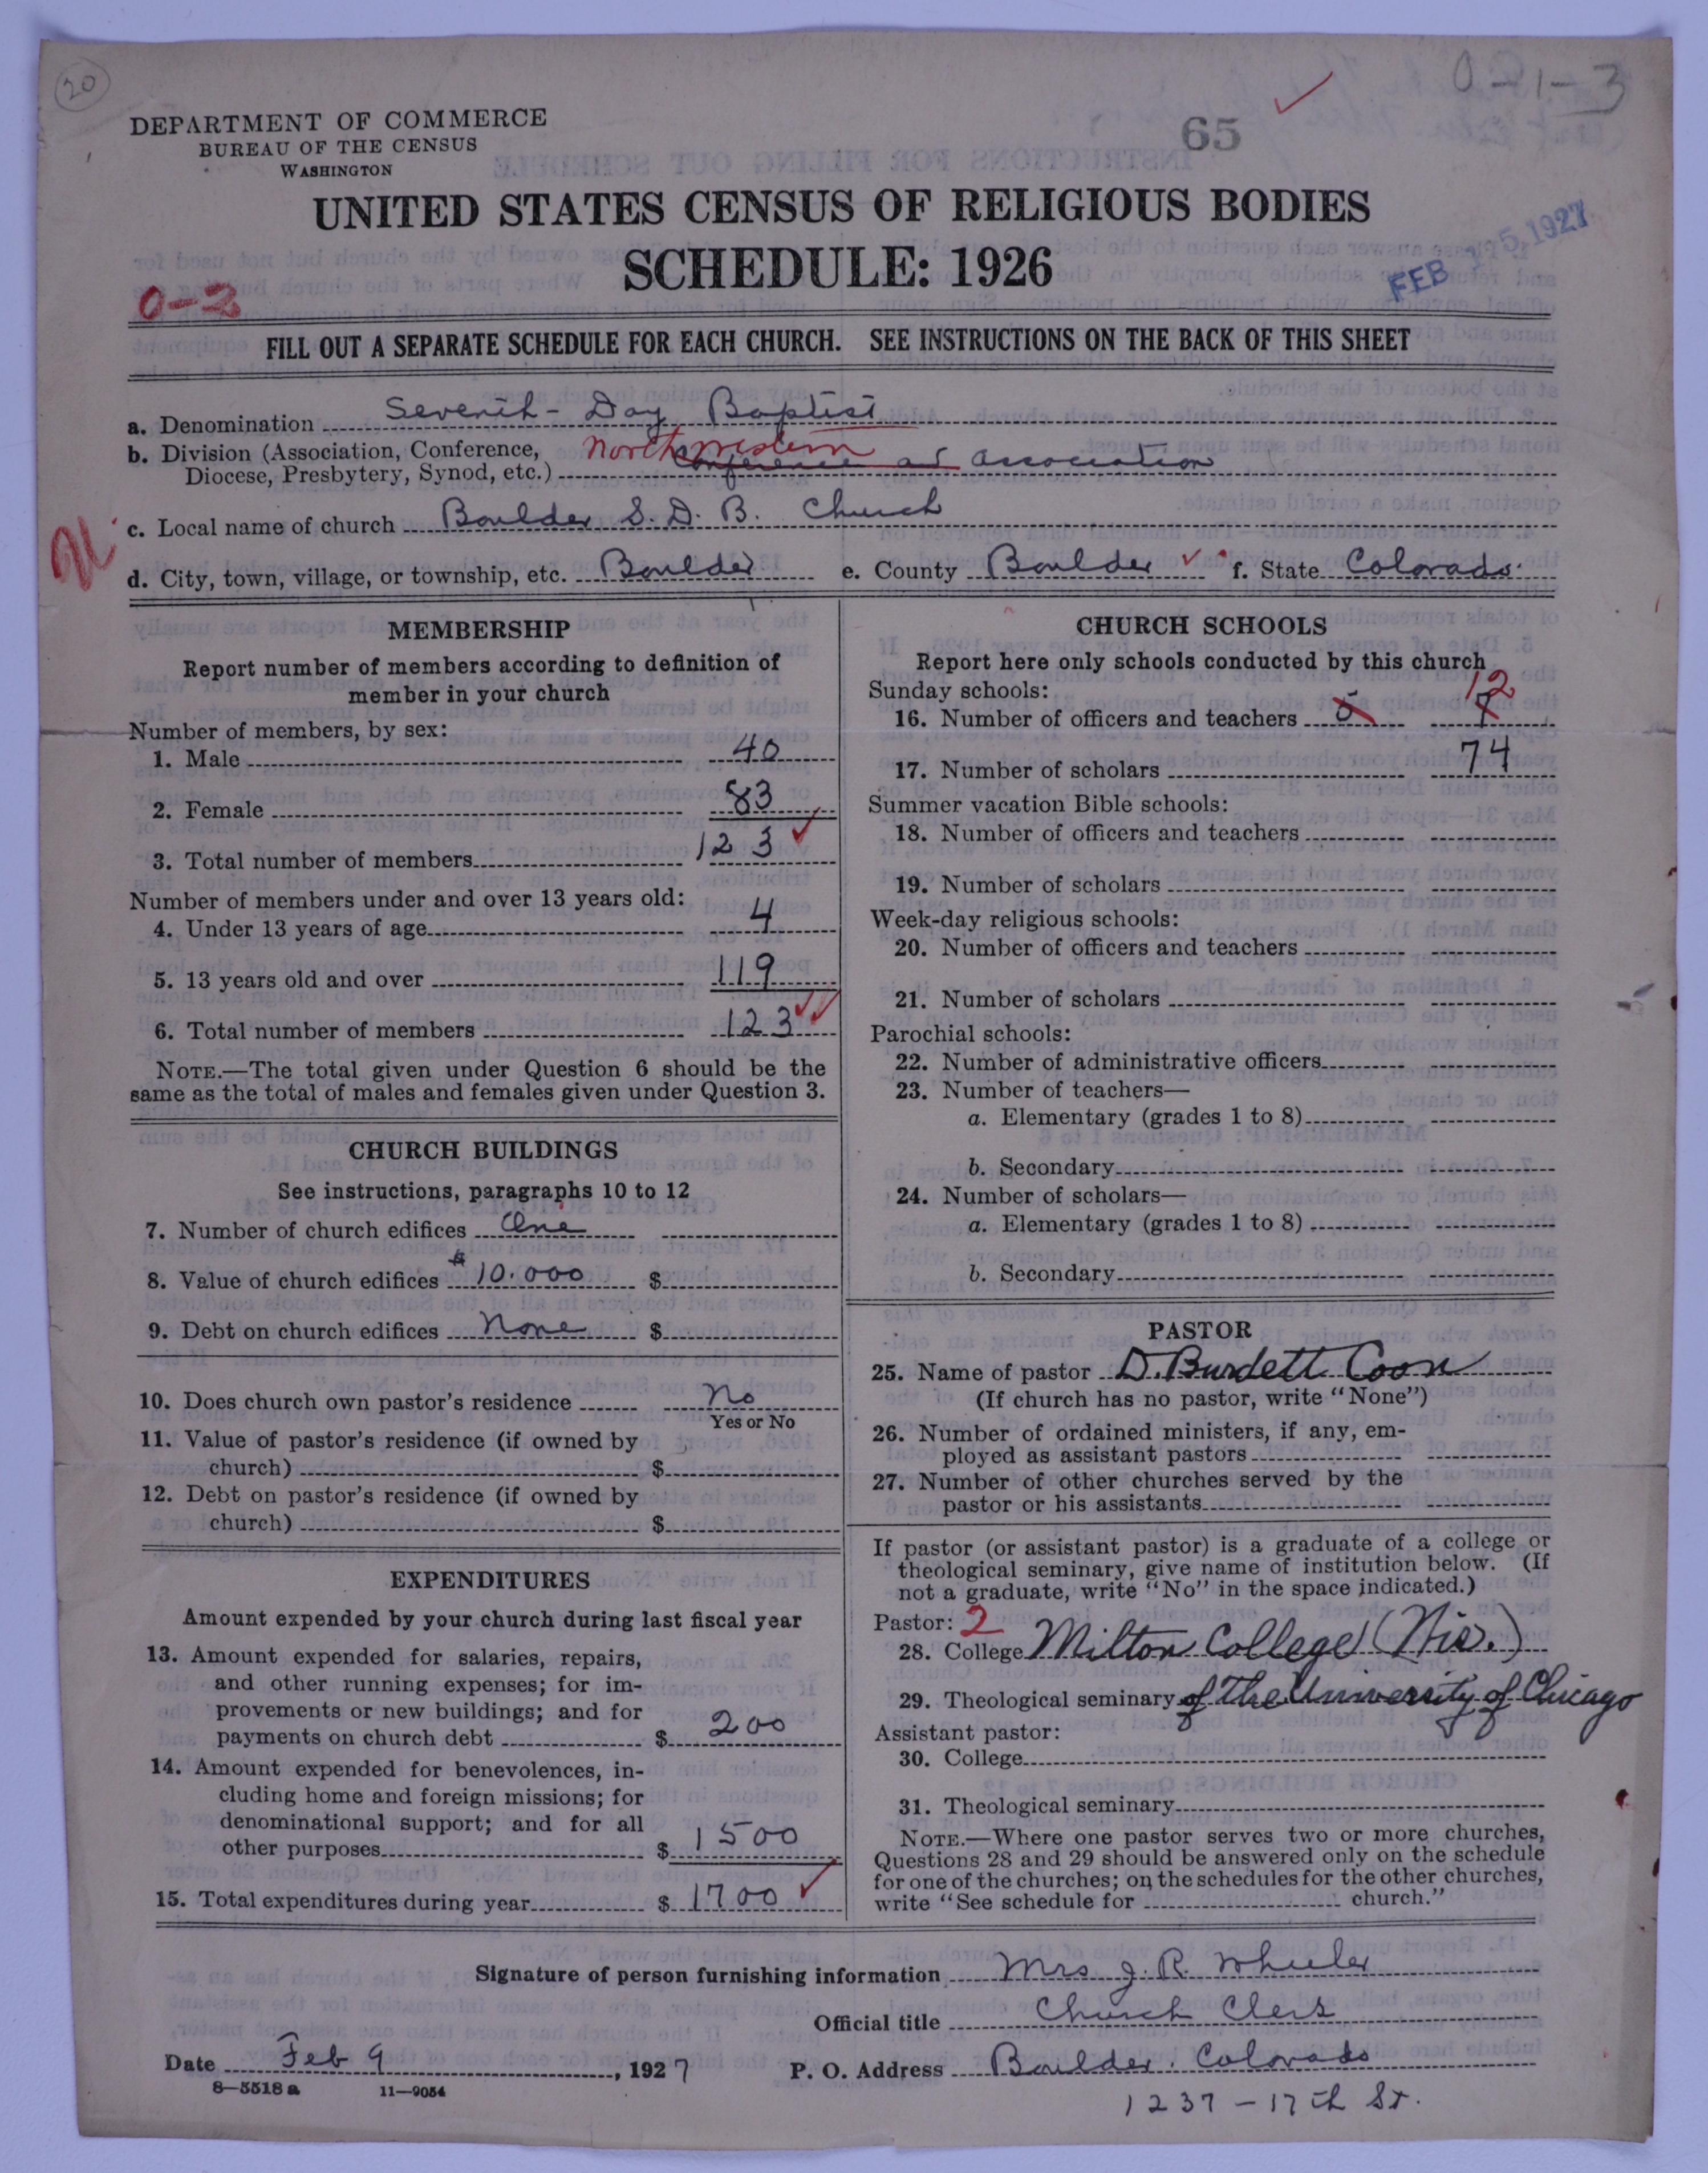 20
0-1-3
DEPARTMENT OF COMMERCE
BUREAU OF THE CENSUS
WASHINGTON
65
UNITED STATES CENSUS OF RELIGIOUS BODIES
SCHEDULE: 1926
FEB 15 1927
0-2
FILL OUT A SEPARATE SCHEDULE FOR EACH CHURCH. SEE INSTRUCTIONS ON THE BACK OF THIS SHEET
a. Denomination Seventh-Day Baptist
b. Division (Association, Conference, Northwestern
Diocese, Presbytery, Synod, etc.) Conference and Association
c. Local name of church Boulder S. D. B. Church
d. City, town, village, or township, etc. Boulder e. County Boulder f. State Colorado
MEMBERSHIP
Report number of members according to definition of
member in your church
Number of members, by sex:
1. Male 40
2. Female 83
3. Total number of members 123
Number of members under and over 13 years old:
4. Under 13 years of age 4
5. 13 years old and over 119
6. Total number of members 123
NOTE.—The total given under Question 6 should be the
same as the total of males and females given under Question 3.
CHURCH BUILDINGS
See instructions, paragraphs 10 to 12
7. Number of church edifices One
8. Value of church edifices $10.000 $
9. Debt on church edifices None $
10. Does church own pastor's residence No
Yes or No
11. Value of pastor's residence (if owned by
church) $
12. Debt on pastor's residence (if owned by
church) $
EXPENDITURES
Amount expended by your church during last fiscal year
13. Amount expended for salaries, repairs,
and other running expenses; for im-
provements or new buildings; and for
payments on church debt $ 200
14. Amount expended for benevolences, in-
cluding home and foreign missions; for
denominational support; and for all
other purposes $ 1500
15. Total expenditures during year $ 1700
CHURCH SCHOOLS
Report here only schools conducted by this church
Sunday schools: 12
16. Number of officers and teachers 5 7
17. Number of scholars 74
Summer vacation Bible schools:
18. Number of officers and teachers
19. Number of scholars
Week-day religious schools:
20. Number of officers and teachers
21. Number of scholars
Parochial schools:
22. Number of administrative officers
23. Number of teachers—
a. Elementary (grades 1 to 8)
b. Secondary
24. Number of scholars—
a. Elementary (grades 1 to 8)
b. Secondary
PASTOR
25. Name of pastor D. Burdett Coon
(If church has no pastor, write "None")
26. Number of ordained ministers, if any, em-
ployed as assistant pastors
27. Number of other churches served by the
pastor or his assistants
If pastor (or assistant pastor) is a graduate of a college or
theological seminary, give name of institution below. (If
not a graduate, write "No" in the space indicated.)
Pastor: 2
28. College Milton College (Wis.)
29. Theological seminary of the University of Chicago
Assistant pastor:
30. College
31. Theological seminary
NOTE.—Where one pastor serves two or more churches,
Questions 28 and 29 should be answered only on the schedule
for one of the churches; on the schedules for the other churches,
write "See schedule for church."
Signature of person furnishing information Mrs J. R. Wheeler
Official title Church Clerk
Date Feb 9, 1927 P. O. Address Boulder. Colorado
8—5518 a 11—9054
1237 - 17th St.